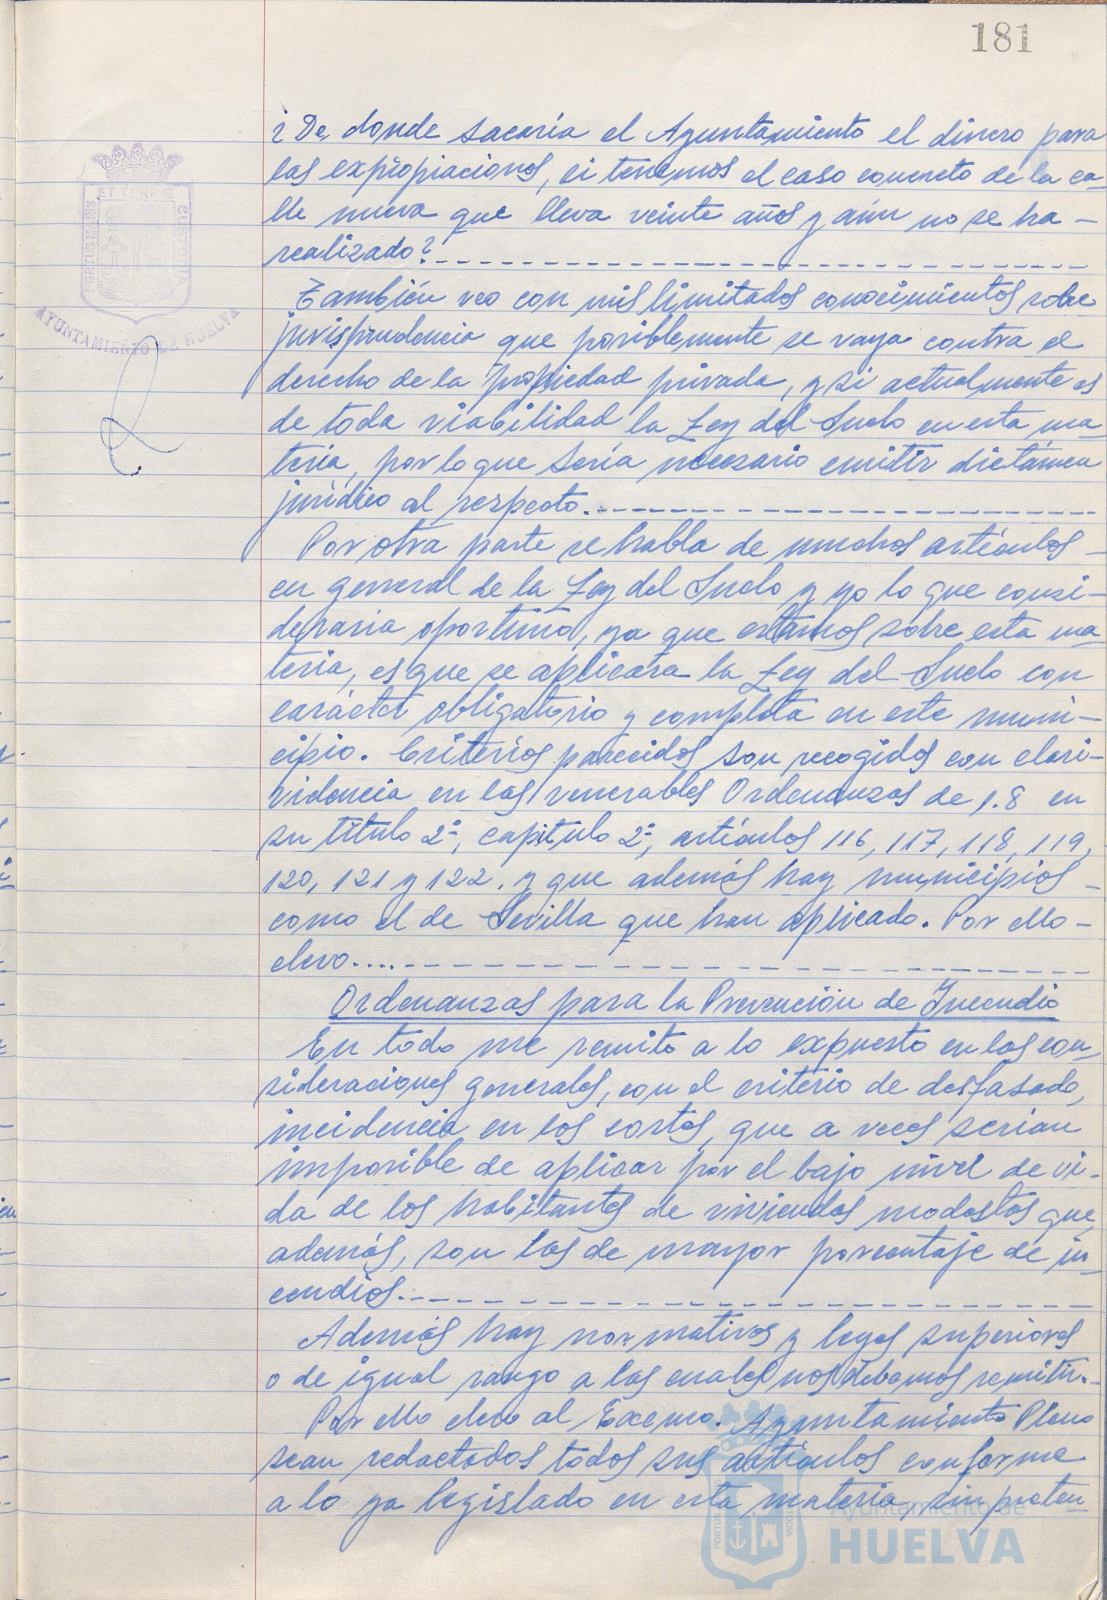 181
¿De donde sacaría el Ayuntamiento el dinero para
las expropiaciones, si tenemos el caso concreto de la ca-
lle nueva que lleva veinte años y aún no se ha -
realizado?
También veo con mis limitados conocimientos sobre
jurisprudencia que posiblemente se vaya contra el
derecho de la propiedad privada, y si actualmente es
de toda viabilidad la Ley del Suelo en esta ma-
teria, por lo que sería necesario emitir dictámen
jurídico al respecto.
Por otra parte se habla de muchos artículos -
en general de la Ley del Suelo y yo lo que consi-
deraria oportuno, ya que estamos sobre esta ma-
teria, es que se aplicara la Ley del Suelo con
carácter obligatorio y completa en este muni-
cipio. Criterios parecidos son recogidos con clari-
videncia en las venerables Ordenanzas de 1.8 en
su título 2º, capitulo 2º, artículos 116, 117, 118, 119,
120, 121 y 122. y que además hay municipios -
como el de Sevilla que han aplicado. Por ello -
elevo....
Ordenanzas para la Prevención de Incendio
En todo me remito a lo expuesto en las con-
sideraciones generales, con el criterio de desfasado,
incidencia en los costos, que a veces serian
imposible de aplicar por el bajo nivel de vi-
da de los habitantes de viviendas modestas que,
además, son las de mayor porcentaje de in-
cendios.
Además hay normativas y leyes superiores
o de igual rango a las cuales nos debemos remitir.
Por ello elevo al Excmo. Ayuntamiento Pleno
sean redactados todos sus artículos conforme
a lo ya legislado en esta materia, sin preten-
PORTUS MARIS ET TERRAE CUSTODIA
AYUNTAMIENTO DE HUELVA
Ayuntamiento de
HUELVA